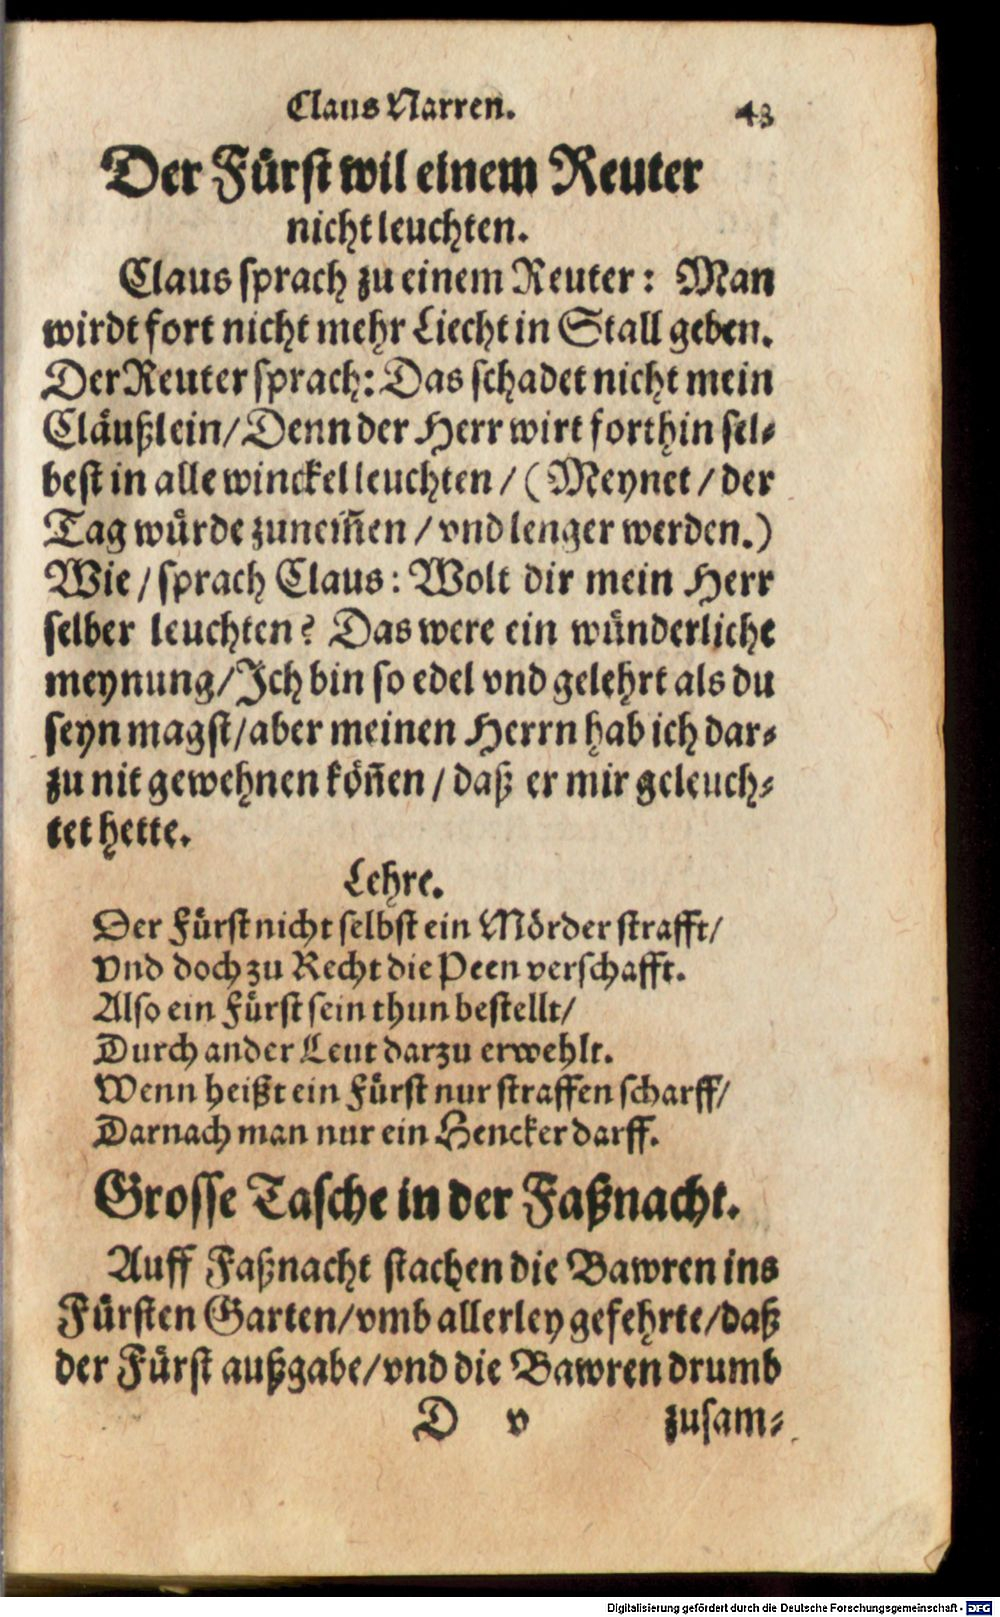 Claus Narren. 43
Der Fürst wil einem Reuter
nicht leuchten.
Claus sprach zu einem Reuter: Man
wirdt fort nicht mehr Liecht in Stall geben.
Der Reuter sprach: Das schadet nicht mein
Cläußlein/ Denn der Herr wirt forthin sel-
best in alle winckel leuchten / (Meynet / der
Tag würde zunem̃en / vnd lenger werden.)
Wie / sprach Claus: Wolt dir mein Herr
selber leuchten? Das were ein wünderliche
meynung/ Ich bin so edel vnd gelehrt als du
seyn magst/ aber meinen Herrn hab ich dar-
zu nit gewehnen kön̄en / daß er mir geleuch-
tet hette.
Lehre.
Der Fürst nicht selbst ein Mörder strafft/
Vnd doch zu Recht die Peen verschafft.
Also ein Fürst sein thun bestellt/
Durch ander Leut darzu erwehlt.
Wenn heißt ein Fürst nur straffen scharff/
Darnach man nur ein Hencker darff.
Grosse Tasche in der Faßnacht.
Auff Faßnacht stachen die Bawren ins
Fürsten Garten/ vmb allerley gefehrte/ daß
der Fürst außgabe/ vnd die Bawren drumb
D v zusam-
Digitalisierung gefördert durch die Deutsche Forschungsgemeinschaft - DFG